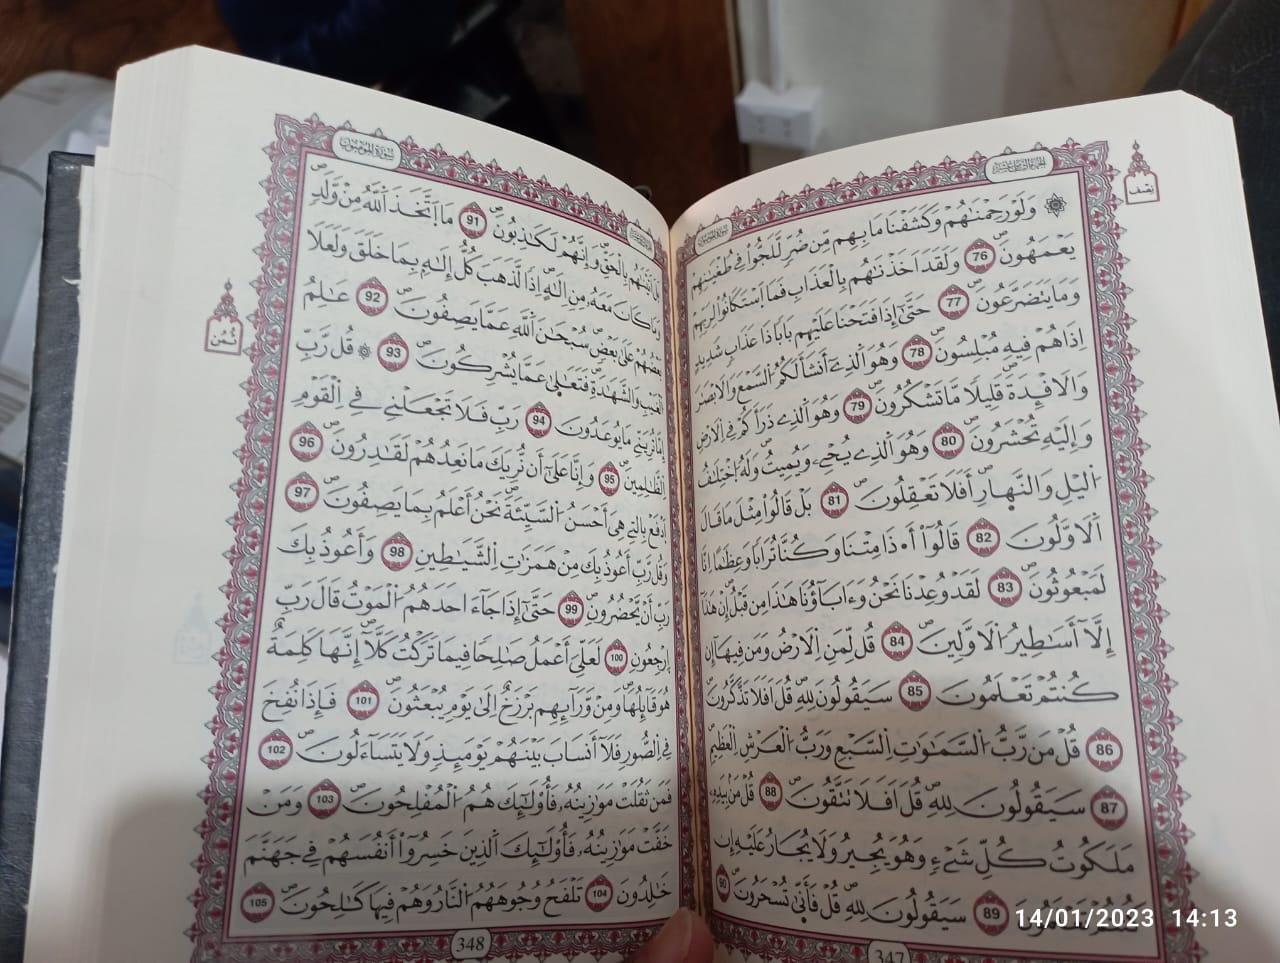 الجزء الثامن عشر
سورة المؤمنون
نصف
۞ وَلَوْ رَحِمْنَٰهُمْ وَكَشَفْنَا مَا بِهِم مِّن ضُرٍّ لَّلَجُّواْ فِي طُغْيَٰنِهِمْ
يَعْمَهُونَ 76 وَلَقَدَ اَخَذْنَٰهُم بِالْعَذَابِ فَمَا اَسْتَكَانُواْ لِرَبِّهِمْ
وَمَا يَتَضَرَّعُونَ 77 حَتَّىٰ إِذَا فَتَحْنَا عَلَيْهِم بَابًا ذَا عَذَابٍ شَدِيدٍ
اِذَا هُمْ فِيهِ مُبْلِسُونَ 78 وَهُوَ اَلذِي أَنشَأَ لَكُمُ السَّمْعَ وَالَابْصَٰرَ
وَالَافْـِٕدَةَ قَلِيلًا مَّا تَشْكُرُونَ 79 وَهُوَ اَلذِي ذَرَأَكُمْ فِي اِلَارْضِ
وَإِلَيْهِ تُحْشَرُونَ 80 وَهُوَ اَلذِي يُحْيِۦ وَيُمِيتُ وَلَهُ اُخْتِلَٰفُ
اُليْلِ وَالنَّهارِ أَفَلَا تَعْقِلُونَ 81 بَلْ قَالُواْ مِثْلَ مَا قَالَ
اَلَاوَّلُونَ 82 قَالُواْ أَ۟ذَا مِتْنَا وَكُنَّا تُرَابًا وَعِظَٰمًا اِنَّا
لَمَبْعُوثُونَ 83 لَقَدْ وُعِدْنَا نَحْنُ وَءَابَآؤُنَا هَٰذَا مِن قَبْلُ إِنْ هَٰذَا
إِلَّآ أَسَٰطِيرُ اُلَاوَّلِينَ 84 قُل لِّمَنِ اِلَارْضُ وَمَن فِيهَا إِن
كُنتُمْ تَعْلَمُونَ 85 سَيَقُولُونَ لِلهِ قُلَ اَفَلَا تَذَّكَّرُونَ
86 قُلْ مَن رَّبُّ اُلسَّمَٰوَٰتِ اِلسَّبْعِ وَرَبُّ اُلْعَرْشِ اِلْعَظِيمِ
87 سَيَقُولُونَ لِلهِ قُلَ اَفَلَا تَتَّقُونَ 88 قُلْ مَنۢ بِيَدِهِۦ
مَلَكُوتُ كُلِّ شَےْءٍ وَهُوَ يُجِيرُ وَلَا يُجَارُ عَلَيْهِ إِن
كُنتُمْ تَعْلَمُونَ 89 سَيَقُولُونَ لِلهِ قُلْ فَأَنَّىٰ تُسْحَرُونَ 90
347
سورة المؤمنون
ثمن
بَلَ اَتَيْنَٰهُم بِالْحَقِّ وَإِنَّهُمْ لَكَٰذِبُونَ 91 مَا اَتَّخَذَ اَللَّهُ مِنْ وَّلَدٍ
وَمَا كَانَ مَعَهُۥ مِنِ اِلَٰهٍ اِذًا لَّذَهَبَ كُلُّ إِلَٰهٍۭ بِمَا خَلَقَ وَلَعَلَا
بَعْضُهُمْ عَلَىٰ بَعْضٍ سُبْحَٰنَ اَللَّهِ عَمَّا يَصِفُونَ 92 عَٰلِمُ
اُلْغَيْبِ وَالشَّهَٰدَةِ فَتَعَٰلَىٰ عَمَّا يُشْرِكُونَ 93 ۞ قُل رَّبِّ
إِمَّا تُرِيَنِّي مَا يُوعَدُونَ 94 رَبِّ فَلَا تَجْعَلْنِي فِي اِلْقَوْمِ
اِلظَّٰلِمِينَ 95 وَإِنَّا عَلَىٰٓ أَن نُّرِيَكَ مَا نَعِدُهُمْ لَقَٰدِرُونَ 96
اَدْفَعْ بِالتِي هِيَ أَحْسَنُ اُلسَّيِّئَةَ نَحْنُ أَعْلَمُ بِمَا يَصِفُونَ 97
وَقُل رَّبِّ أَعُوذُ بِكَ مِنْ هَمَزَٰتِ اِلشَّيَٰطِينِ 98 وَأَعُوذُ بِكَ
رَبِّ أَنْ يَّحْضُرُونِ 99 حَتَّىٰٓ إِذَا جَآءَ احَدَهُمُ اُلْمَوْتُ قَالَ رَبِّ
اِرْجِعُونِ 100 لَعَلِّيَ أَعْمَلُ صَٰلِحًا فِيمَا تَرَكْتُ كَلَّآ إِنَّهَا كَلِمَةٌ
هُوَ قَآئِلُهَا وَمِنْ وَّرَآئِهِم بَرْزَخٌ اِلَىٰ يَوْمِ يُبْعَثُونَ 101 فَإِذَا نُفِخَ
فِي اِلصُّورِ فَلَآ أَنسَابَ بَيْنَهُمْ يَوْمَئِذٍ وَلَا يَتَسَآءَلُونَ 102
فَمَن ثَقُلَتْ مَوَٰزِينُهُۥ فَأُوْلَٰٓئِكَ هُمُ اُلْمُفْلِحُونَ 103 وَمَنْ
خَفَّتْ مَوَٰزِينُهُۥ فَأُوْلَٰٓئِكَ اَلذِينَ خَسِرُواْ أَنفُسَهُمْ فِي جَهَنَّمَ
خَٰلِدُونَ 104 تَلْفَحُ وُجُوهَهُمُ اُلنَّارُ وَهُمْ فِيهَا كَٰلِحُونَ 105
348
14/01/2023 14:13